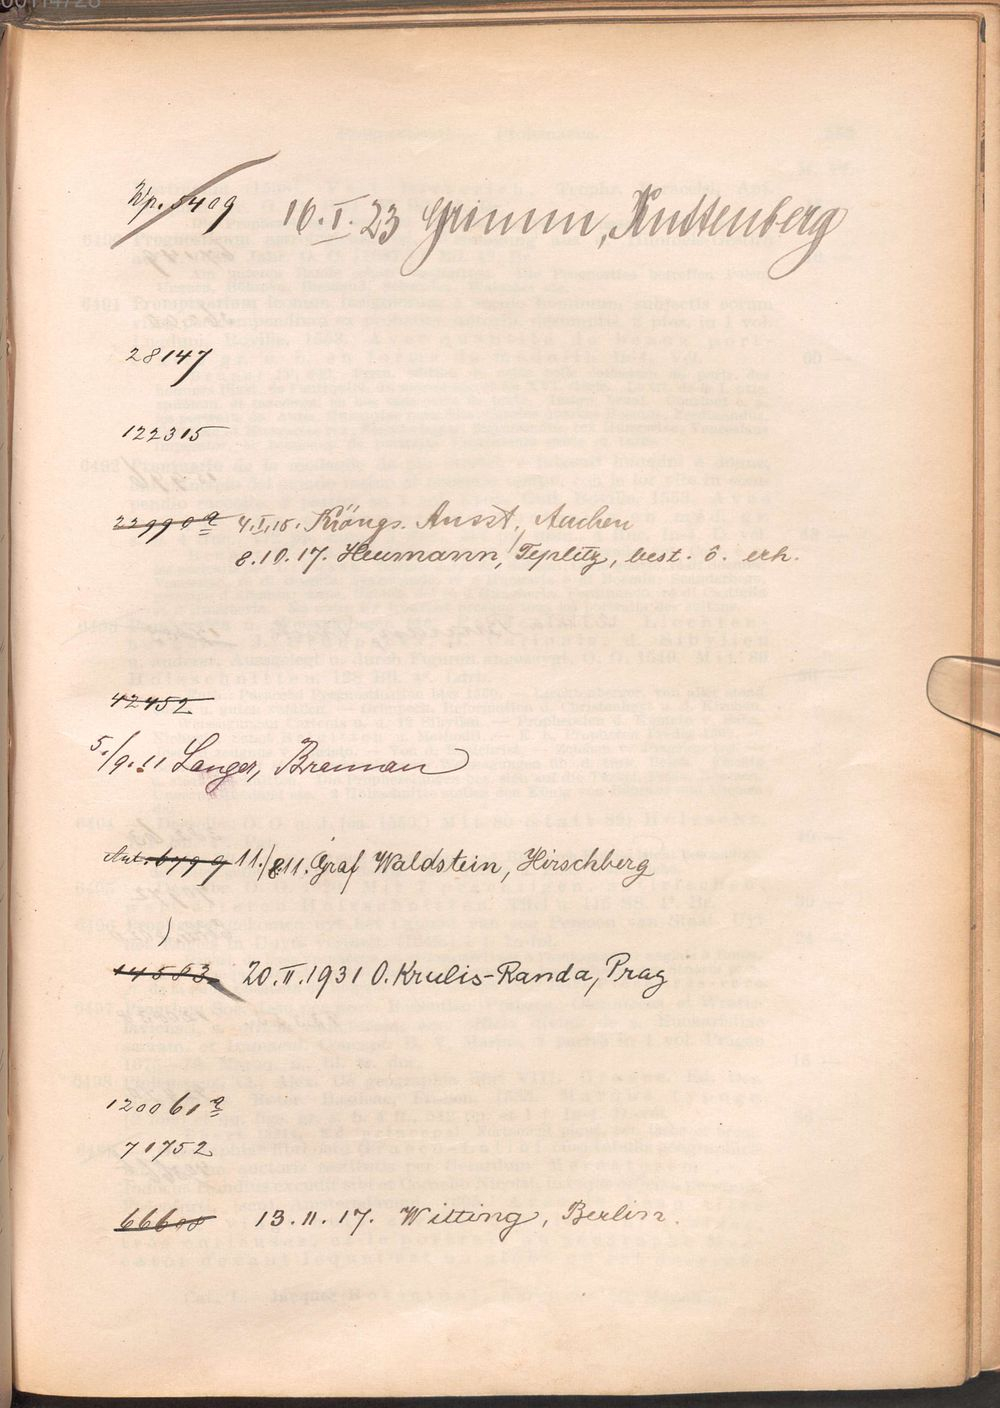 5409 10.I.23 Grimm, Kuttenberg
28147
122315
22990a 4.I.15. Königs. Ausst., Aachen
8.10.17. Heumann, Teplitz, best. 6. erh.
42452
5./9.11 Langer, Braunau
Aut. 6799 11./8.11. Graf Waldstein, Hirschberg
14583 20.II.1931 O. Krulis-Randa, Prag
120061a
71752
66600 13.11.17. Witting, Berlin.